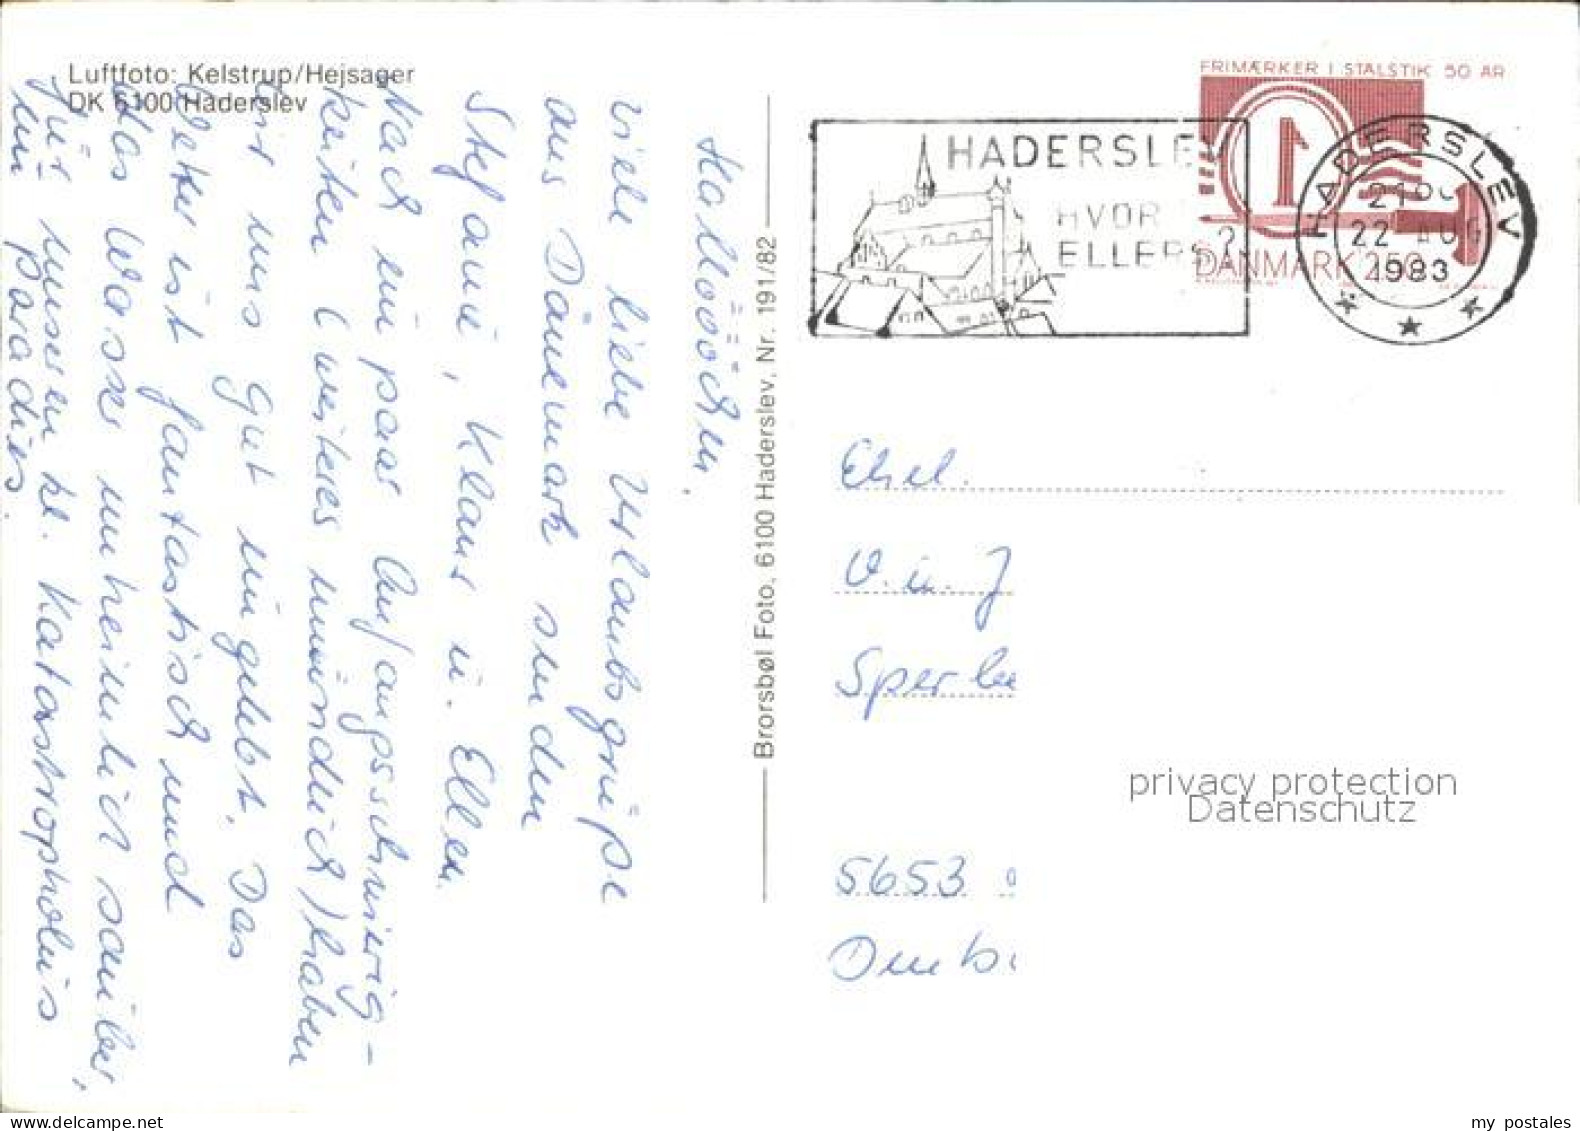 Luftfoto: Kelstrup/Hejsager
DK 6100 Haderslev
Hallööchen.
viele liebe Urlaubsgrüße
aus Dänemark senden
Stefanie, Klaus u. Ellen.
Nach ein paar Anfangsschwierig-
keiten (weiteres mündlich) haben
wir uns gut eingelebt. Das
Wetter ist fantastisch und
das Wasser unheimlich sauber,
für unseren kl. Katastropholuis
ein Paradies.
Brorsbøl Foto, 6100 Haderslev, Nr. 191/82
FRIMÆRKER I STÅLSTIK 50 ÅR
1
DANMARK 250
HADERSLEV
HVOR
ELLERS?
HADERSLEV
22 AUG
1983
Ehel.
u.
5653
privacy protection
Datenschutz
my postales